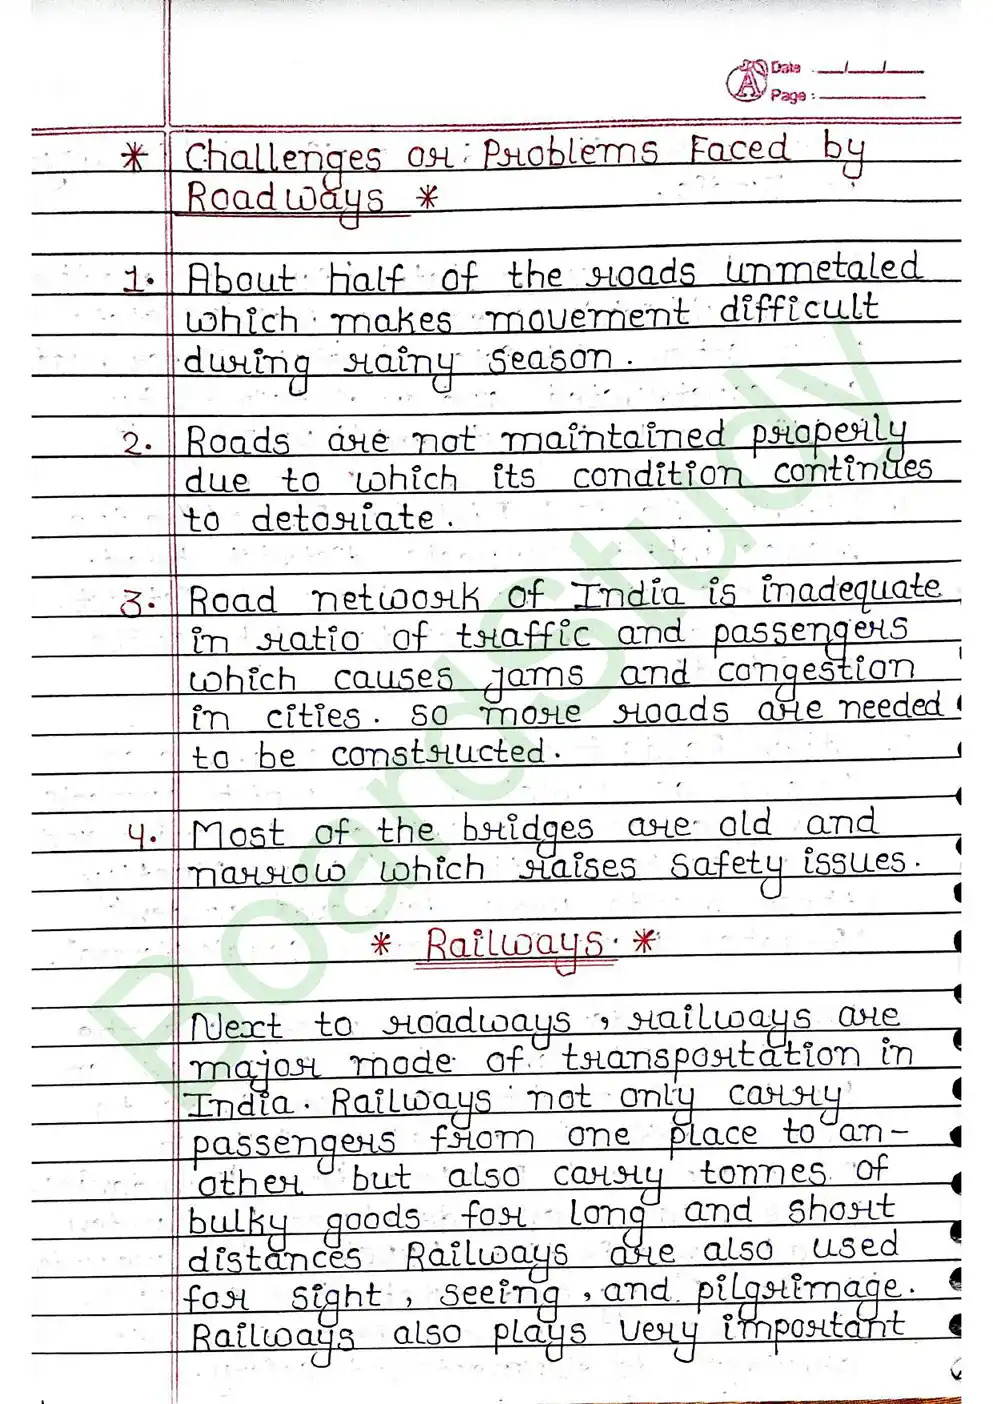 Date : __/__/__
Page : ______
* Challenges or Problems Faced by
Roadways *
1. About half of the roads unmetaled
which makes movement difficult
during rainy season.
2. Roads are not maintained properly
due to which its condition continues
to detoriate.
3. Road network of India is inadequate
in ratio of traffic and passengers
which causes jams and congestion
in cities. so more roads are needed
to be constructed.
4. Most of the bridges are old and
narrow which raises safety issues.
* Railways. *
Next to roadways, railways are
major mode of transportation in
India. Railways not only carry
passengers from one place to an-
other but also carry tonnes of
bulky goods for long and short
distances Railways are also used
for sight, seeing, and pilgrimage.
Railways also plays very important
BoardStudy